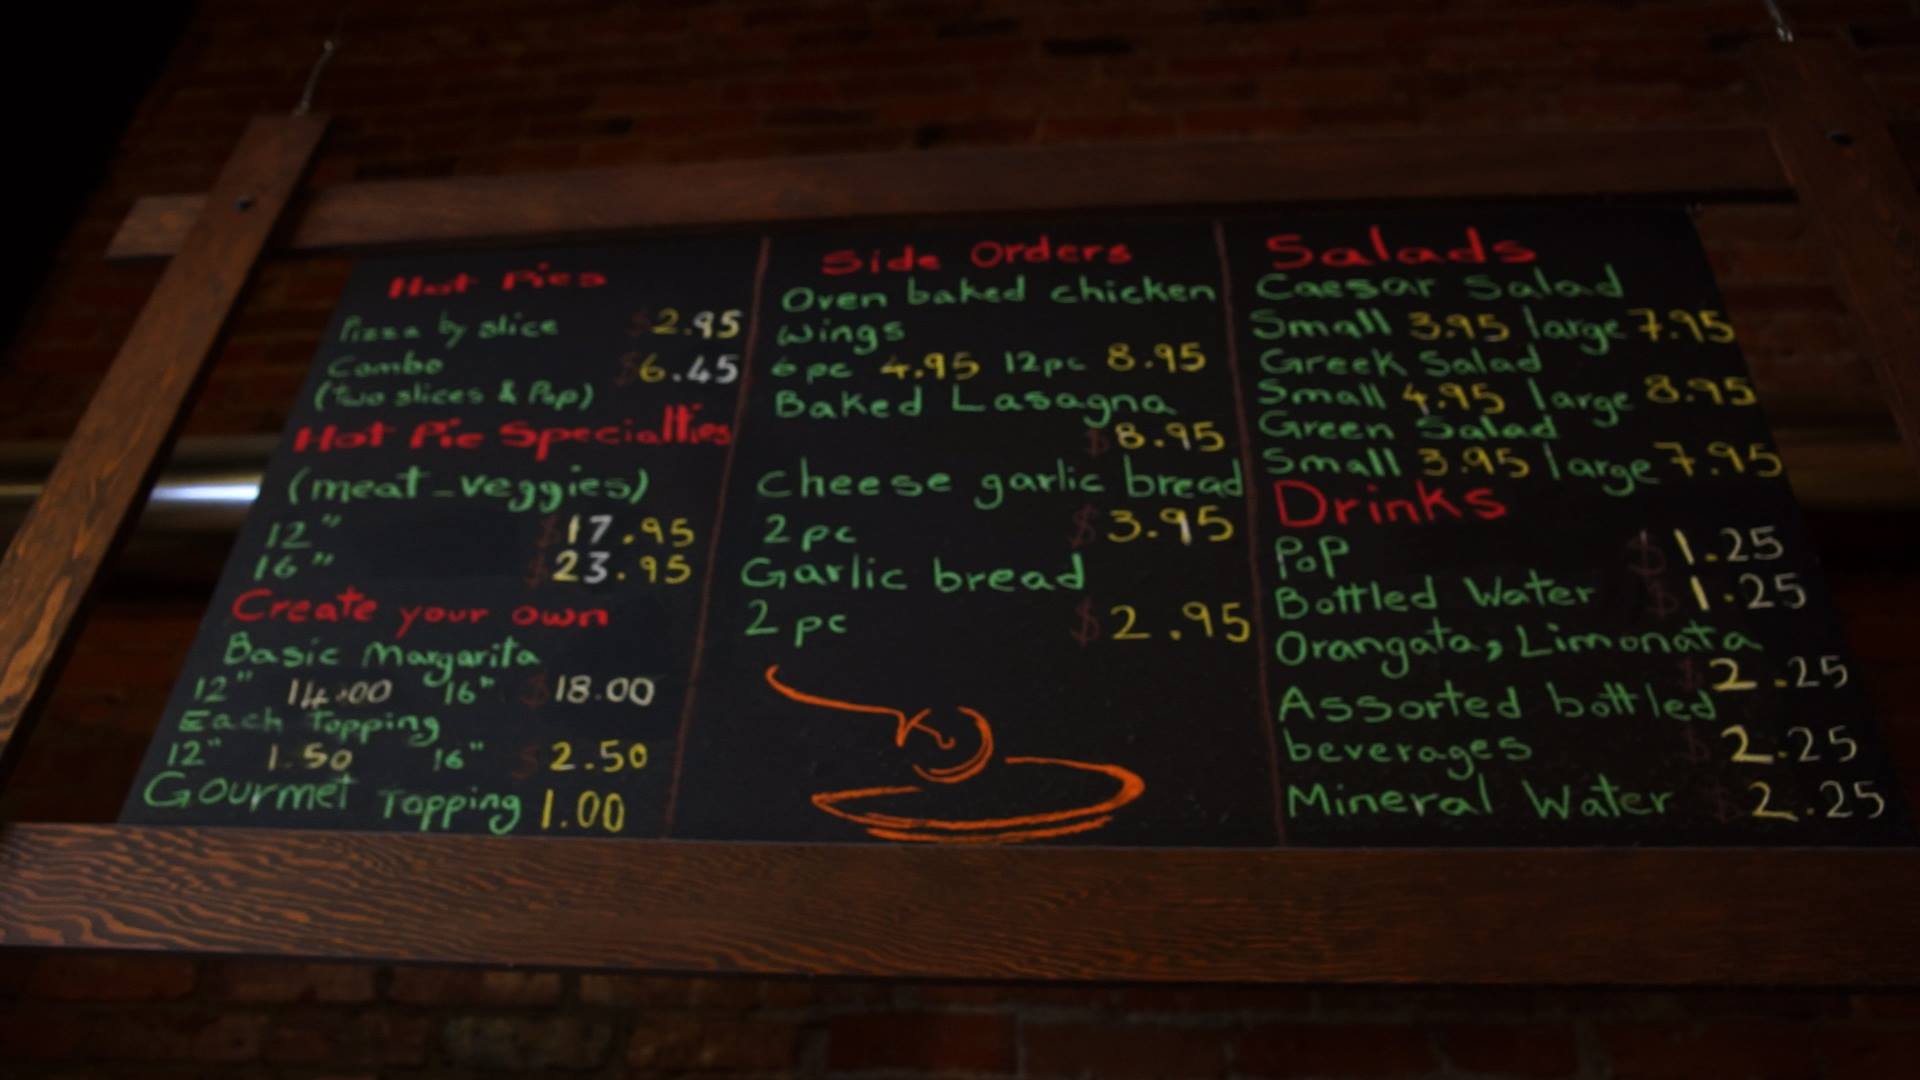 Hot Pies
Pizza by slice $2.95
Combo $6.45
(two slices & Pop)
Hot Pie Specialties
(meat-veggies)
12" $17.95
16" $23.95
Create your own
Basic Margarita
12" 14.00 16" $18.00
Each Topping
12" 1.50 16" $2.50
Gourmet Topping 1.00
Side Orders
Oven baked chicken
Wings
6 pc 4.95 12pc 8.95
Baked Lasagna
$8.95
Cheese garlic bread
2 pc $3.95
Garlic bread
2 pc $2.95
Salads
Caesar Salad
Small 3.95 large 7.95
Greek Salad
Small 4.95 large 8.95
Green Salad
Small 3.95 large 7.95
Drinks
Pop $1.25
Bottled Water $1.25
Orangata, Limonata
2.25
Assorted bottled
beverages $2.25
Mineral Water $2.25